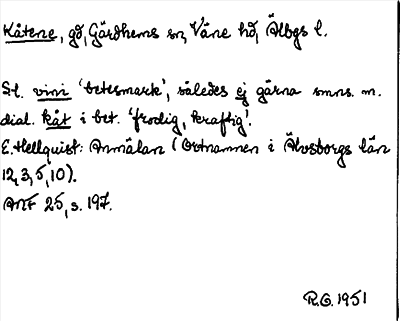 Kåtene, gd, Gärdhems sn, Väne hd, Älbgs l.
St. vini 'betesmark', således ej gärna smns. m.
dial. kåt i bet. 'frodig, kraftig'.
E. Hellquist: Anmälan (Ortnamnen i Älvsborgs län
12, 3, 5, 10).
ANF 25, s. 197.
R.G. 1951